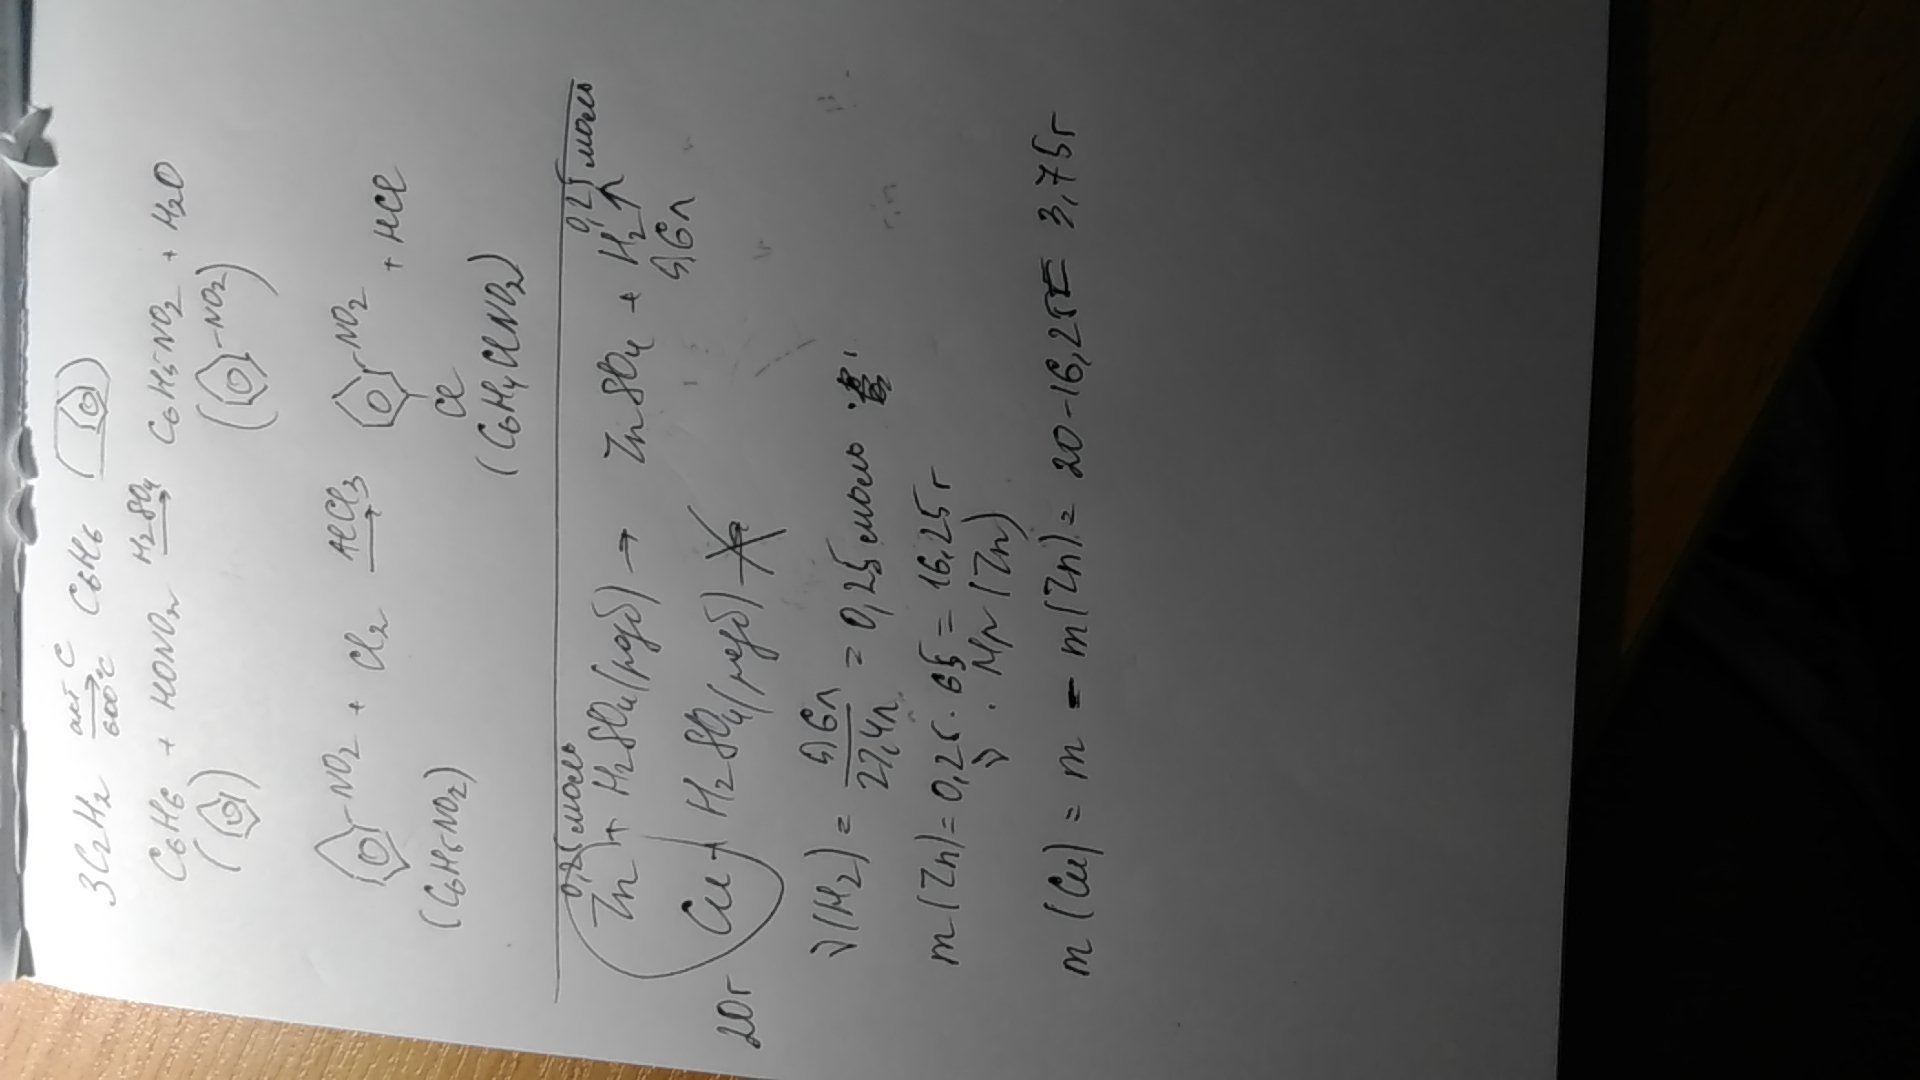 3C2H2 акт C 600°C → C6H6 ( )
C6H6 + HONO2 H2SO4 → C6H5-NO2 + H2O
( ) ( -NO2)
-NO2 + Cl2 AlCl3 → -NO2 + HCl
Cl
(C6H5-NO2) (C6H4ClNO2)
0,25 моль 0,25 моль
Zn + H2SO4(разб) → ZnSO4 + H2↑
5,6л
Cu + H2SO4(разб)
20г
ν(H2) = 5,6л / 22,4л = 0,25 моль
m(Zn) = 0,25 · 65 = 16,25г
ν · Mr(Zn)
m(Cu) = m - m(Zn) = 20-16,25 = 3,75г